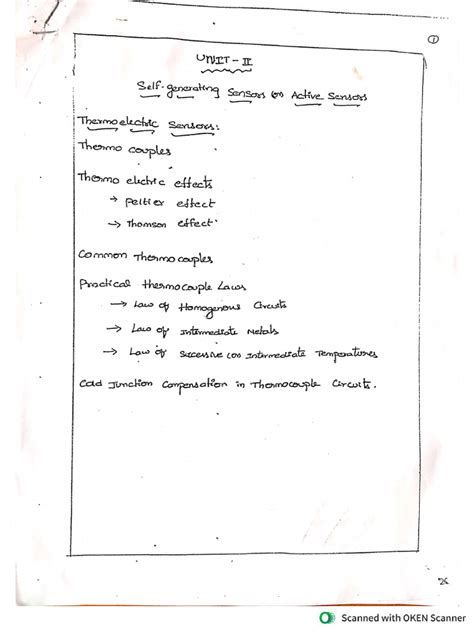 ①
UNIT - II
Self-generating Sensors (or) Active Sensors
Thermoelectric Sensors:
Thermo couples
Thermo elictric effects
→ Peltier effect
→ Thomson effect
Common Thermocouples
Practical thermocouple Laws
→ Law of Homogenous Circuits
→ Law of Intermediate Metals
→ Law of Successive (or) Intermediate Temperatures
Cold Junction Compensation in Thermocouple Circuits.
Scanned with OKEN Scanner